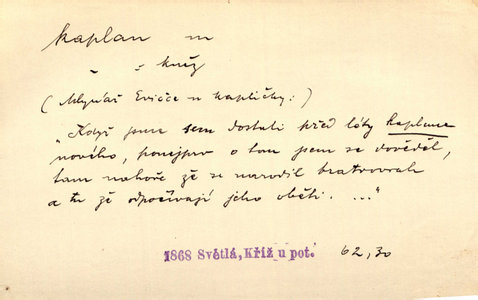 kaplan m
kněz
(Mlynář Evičče u kapličky:)
"Když jsme sem dostali před léty kaplana
nového, ponejprv o tom jsem se dověděl,
tam nahoře že se narodil bratrovrah
a tu že odpočívají jeho oběti. ..."
1868 Světlá, Kříž u pot. 62,30